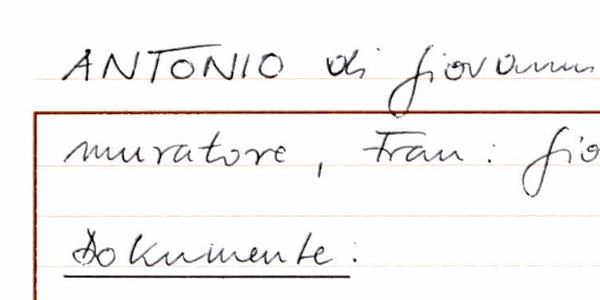 ANTONIO di Giovanni
muratore, Frau: Gio
Dokumente: